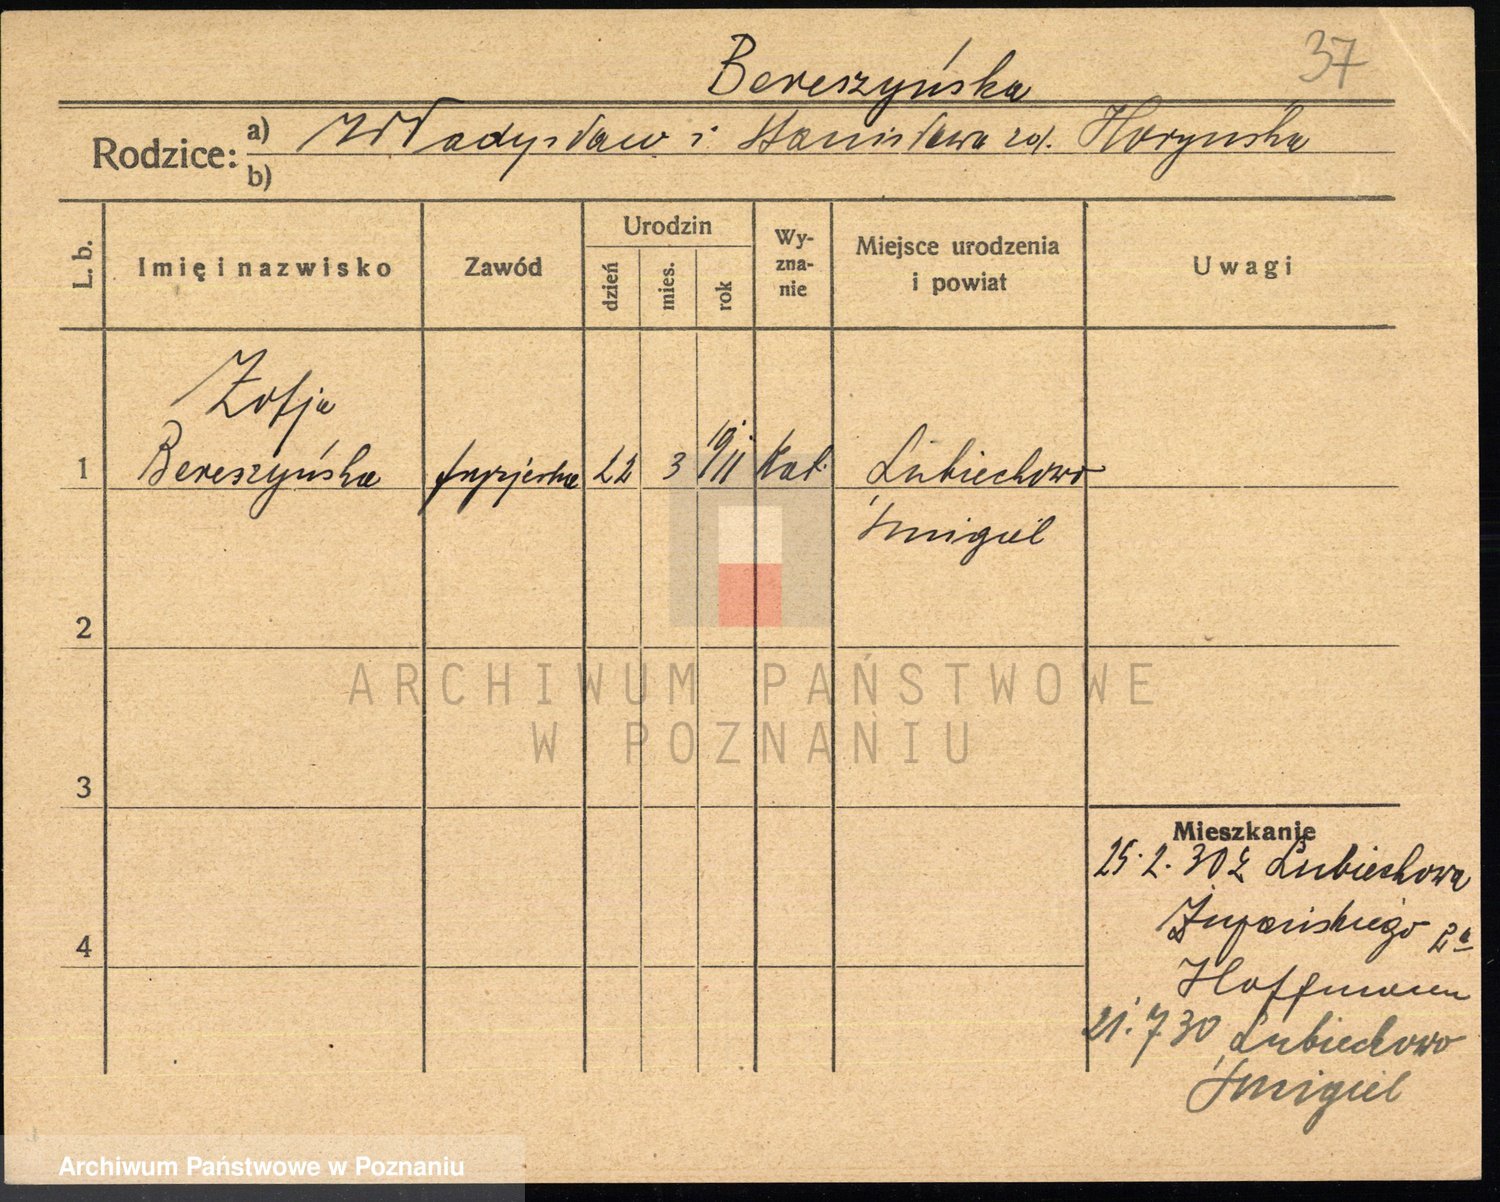 37
Bereszyńska
Rodzice: a) Władysław i Stanisława rod. Horyńska
b)
L. b.
Imię i nazwisko
Zawód
Urodzin
dzień
mies.
rok
Wy-
zna-
nie
Miejsce urodzenia
i powiat
Uwagi
Zofja
1 Bereszyńska fryzjerka 22 3 1911 Kat. Lubiechowo
Śmigiel
2
3
4
Mieszkanie
25.2.30 z Lubiechowa
Żupańskiego 2a
Hoffmann
21.7 30 Lubiechowo
Śmigiel
ARCHIWUM PAŃSTWOWE
W POZNANIU
Archiwum Państwowe w Poznaniu